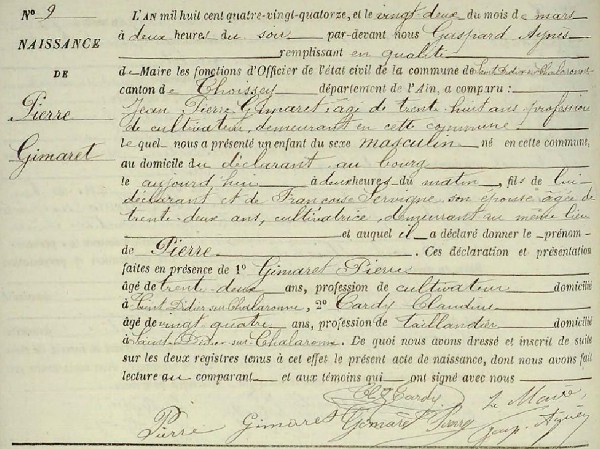 No 9
NAISSANCE
DE
Pierre
Gimaret
L'AN mil huit cent quatre-vingt-quatorze, et le vingt deux du mois de mars
à deux heures du soir par-devant nous Gaspard
remplissant en qualité
de Maire les fonctions d'Officier de l'état civil de la commune de Saint Didier s/ Chalaronne
canton de Thoissey département de l'Ain, a comparu :
Jean Pierre Gimaret, âgé de trente huit ans profession
de cultivateur, demeurant en cette commune
lequel nous a présenté un enfant du sexe masculin né en cette commune,
au domicile du déclarant au bourg
le aujourd'hui à deux heures du matin, fils de lui
déclarant et de Françoise Servigne son épouse âgée de
trente-deux ans, cultivatrice, demeurant au même lieu
et auquel il a déclaré donner le prénom
de Pierre . Ces déclaration et présentation
faites en présence de 1° Gimaret Pierre
âgé de trente-deux ans, profession de cultivateur domicilié
à Saint Didier sur Chalaronne, 2° Cardy Claudius
âgé de vingt quatre ans, profession de taillandier domicilié
à Saint Didier sur Chalaronne. De quoi nous avons dressé et inscrit de suite
sur les deux registres tenus à cet effet le présent acte de naissance, dont nous avons fait
lecture au comparant et aux témoins qui ont signé avec nous
Cardy
Le Maire
Pierre Gimaret Gimaret Pierre